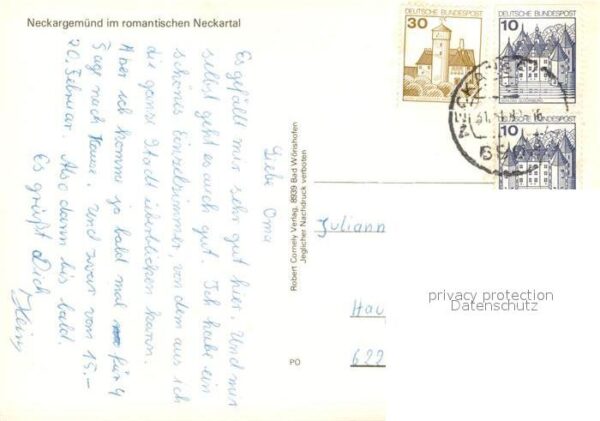 Neckargemünd im romantischen Neckartal
Liebe Oma
Es gefällt mir sehr gut hier. Und mir
selbst geht es auch gut. Ich habe ein
schönes Einzelzimmer, von dem aus ich
die ganze Stadt überblicken kann.
Aber ich komme ja bald mal für 4
Tage nach Hause. Und zwar vom 15.–
20. Februar. Also dann bis bald.
Es grüßt Dich
Heinz
Robert Cornely Verlag, 8939 Bad Wörishofen
Jeglicher Nachdruck verboten
PO
30
DEUTSCHE BUNDESPOST
10
DEUTSCHE BUNDESPOST
10
Juliann
Hau
622
privacy protection
Datenschutz